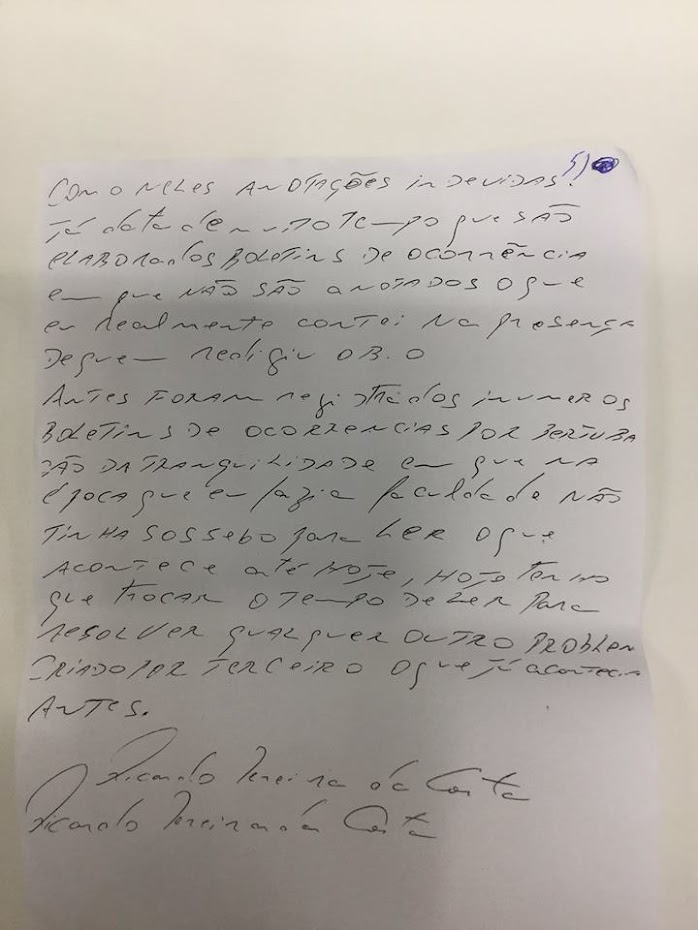 5)
COMO NELES ANOTAÇÕES INDEVIDAS.
Já data de muito tempo que SÃO
ELABORados BOLETINS DE OCORRÊNCIA
em que NÃO SÃO anotADOS O que
eu Realmente contei NA presença
DE quem redigiu O B.O
ANTES FORAM registrados inumerOS
BOLETINS DE OCORRENCIAS POR PERTUBA
ÇÃO DA TRANQUILIDADE em que NA
época que eu fazia faculdade NÃO
TINHA SOSSEBO para LER O que
ACONTECE até HOJE, HOJE TENHO
que TROCAR O TEMPO DE LER PARA
RESOLVER QUALQUER OUTRO PROBLEM
CRIADO POR TERCEIRO O que JÁ acontecia
ANTES.
Ricardo Pereira da Costa
Ricardo Pereira da Costa